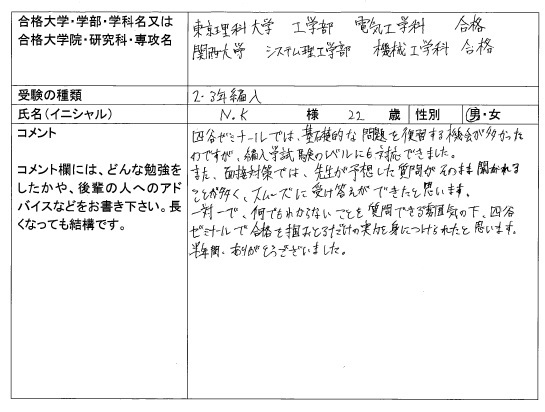 合格大学・学部・学科名又は
合格大学院・研究科・専攻名
東京理科大学 工学部 電気工学科 合格
関西大学 システム理工学部 機械工学科 合格
受験の種類
2・3年編入
氏名(イニシャル)
N.K 様 22 歳 性別 男・女
コメント
コメント欄には、どんな勉強を
したかや、後輩の人へのアド
バイスなどをお書き下さい。長
くなっても結構です。
四谷ゼミナールでは、基礎的な問題を復習する機会が多かった
のですが、編入学試験のレベルにも対抗できました。
また、面接対策では、先生が予想した質問がそのまま聞かれる
ことが多く、スムーズに受け答えができたと思います。
一対一で、何でもわからないことを質問できる雰囲気の下、四谷
ゼミナールで合格を掴みとるだけの実力を身につけられたと思います。
半年間、ありがとうございました。